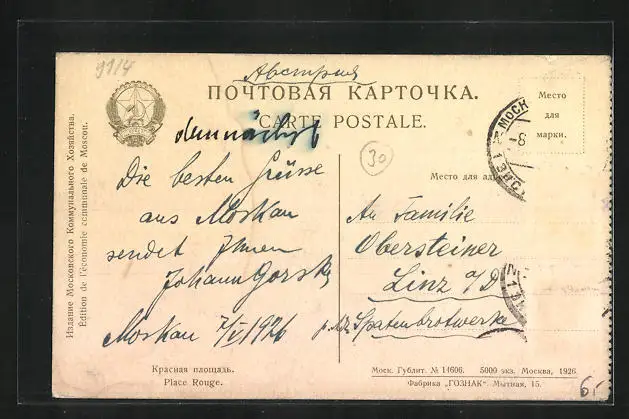 9114
Австрия
ПОЧТОВАЯ КАРТОЧКА.
CARTE POSTALE.
demnächst
Die besten Grüsse
aus Moskau
sendet Ihnen
Johann Gorsky
Moskau 7/V 1926
30
Место
для
марки.
МОСК
8
An Familie
Obersteiner
Linz a/D
Spatenbrotwerke
Издание Московского Коммунального Хозяйства.
Édition de l'économie communale de Moscou.
Красная площадь.
Place Rouge.
Моск. Гублит. № 14606. 5000 экз. Москва, 1926.
Фабрика „ГОЗНАК" Мытная, 15.
6,-